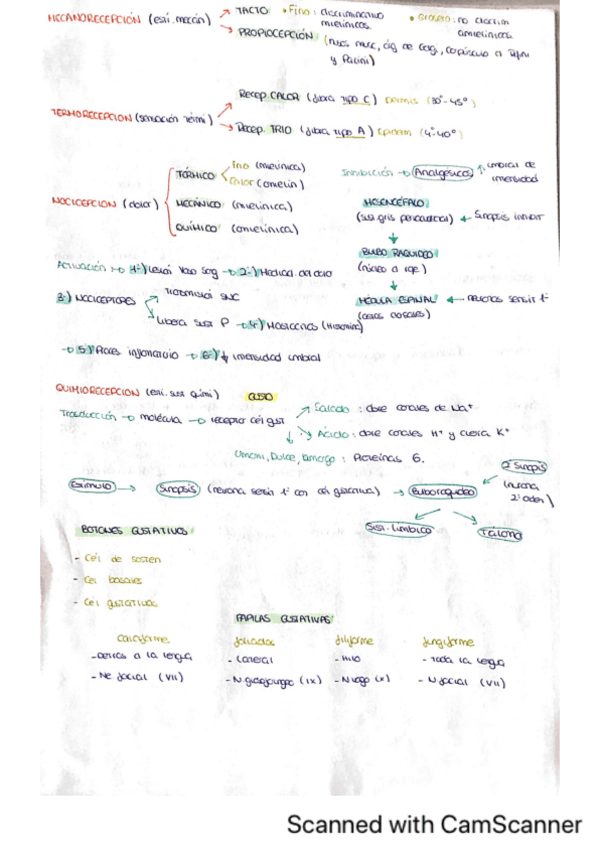 MECANORECEPCIÓN (esti. mecán) → TACTO • Fino: discriminativo mielínicos. • Grosero: no discrim amielínicos.
→ PROPIOCEPCIÓN (huso musc, org de Golgi, corpúsculo
y Pacini)
TERMORECEPCIÓN (sensación térmi) → Recep. CALOR (fibra tipo C) (30°-45°)
→ Recep. FRIO (fibra tipo A) (4°-40°)
NOCICEPCION (dolor)
TÉRMICO Frio (mielínica)
Calor (amielin)
MECÁNICO (mielínica)
QUÍMICO (amielínica)
Inhibición → Analgésicos ↑ umbral de
intensidad
MESENCÉFALO
(sust gris) ← Sinapsis
↓
BULBO RAQUIDEO
(núcleo)
↓
MÉDULA ESPINAL ← neuronas sensit 1ª
Activación → 1º) Lesió Vaso Sang → 2º) Mediad. del dolor
3º) NOCICEPTORES Transmisió SNC
Libera sust P → 4º) Mastocitos (Histamina)
→ 5º) Proces inflamatorio → 6º) ↓ intensidad umbral
QUIMIORECEPCION (esti. sust químì) GUSTO
Transducción → molécula → receptor cél gust → Salado: abre canales de Na+
→ Ácido: abre canales H+ y cierra K+
Umami, Dulce, Amargo: Proteínas G.
2ª Sinapsis
Estimulo → Sinapsis (neurona sensit 1ª con cél gustativa) → Bulboraquideo (neurona
2º orden)
Sist. Limbico Tálamo
BOTONES GUSTATIVOS
- Cél de sosten
- Cel basales
- Cél gustativas
PAPILAS GUSTATIVAS
Caliciforme foliadas filiforme fungiforme
- detras a la lengua - Lateral - Toda la lengua
- Ne facial (VII) - N glosofaringeo (IX) - N vago (X) - N facial (VII)
Scanned with CamScanner